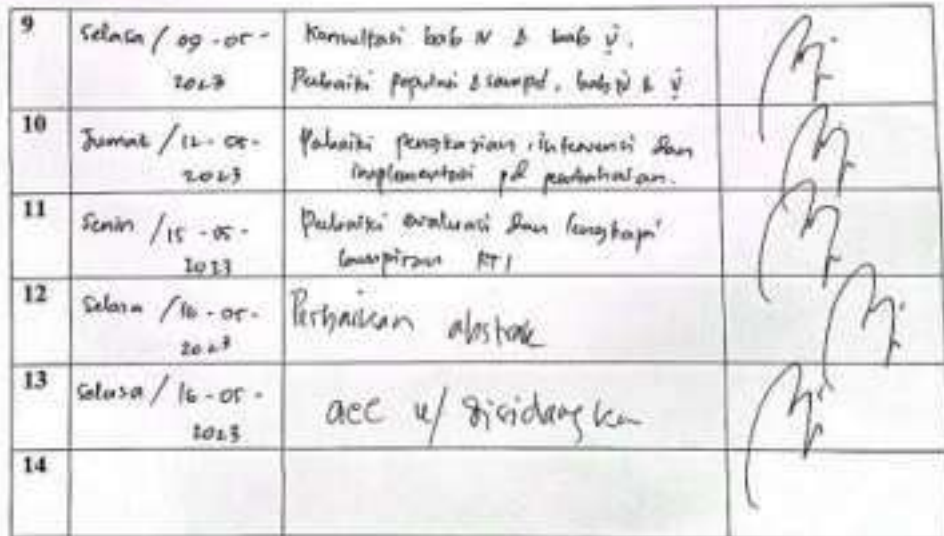 9 Selasa / 09-05- Konsultasi bab IV & bab V.
2023 Perbaiki populasi & sampel, bab IV & V
10 Jumat / 12-05- Perbaiki pengkajian, intervensi dan
2023 implementasi pd pembahasan.
11 Senin / 15-05- Perbaiki evaluasi dan lengkapi
2023 lampiran KTI
12 Selasa / 16-05- Perbaikan abstrak
2023
13 Selasa / 16-05- acc u/ disidangkan
2023
14